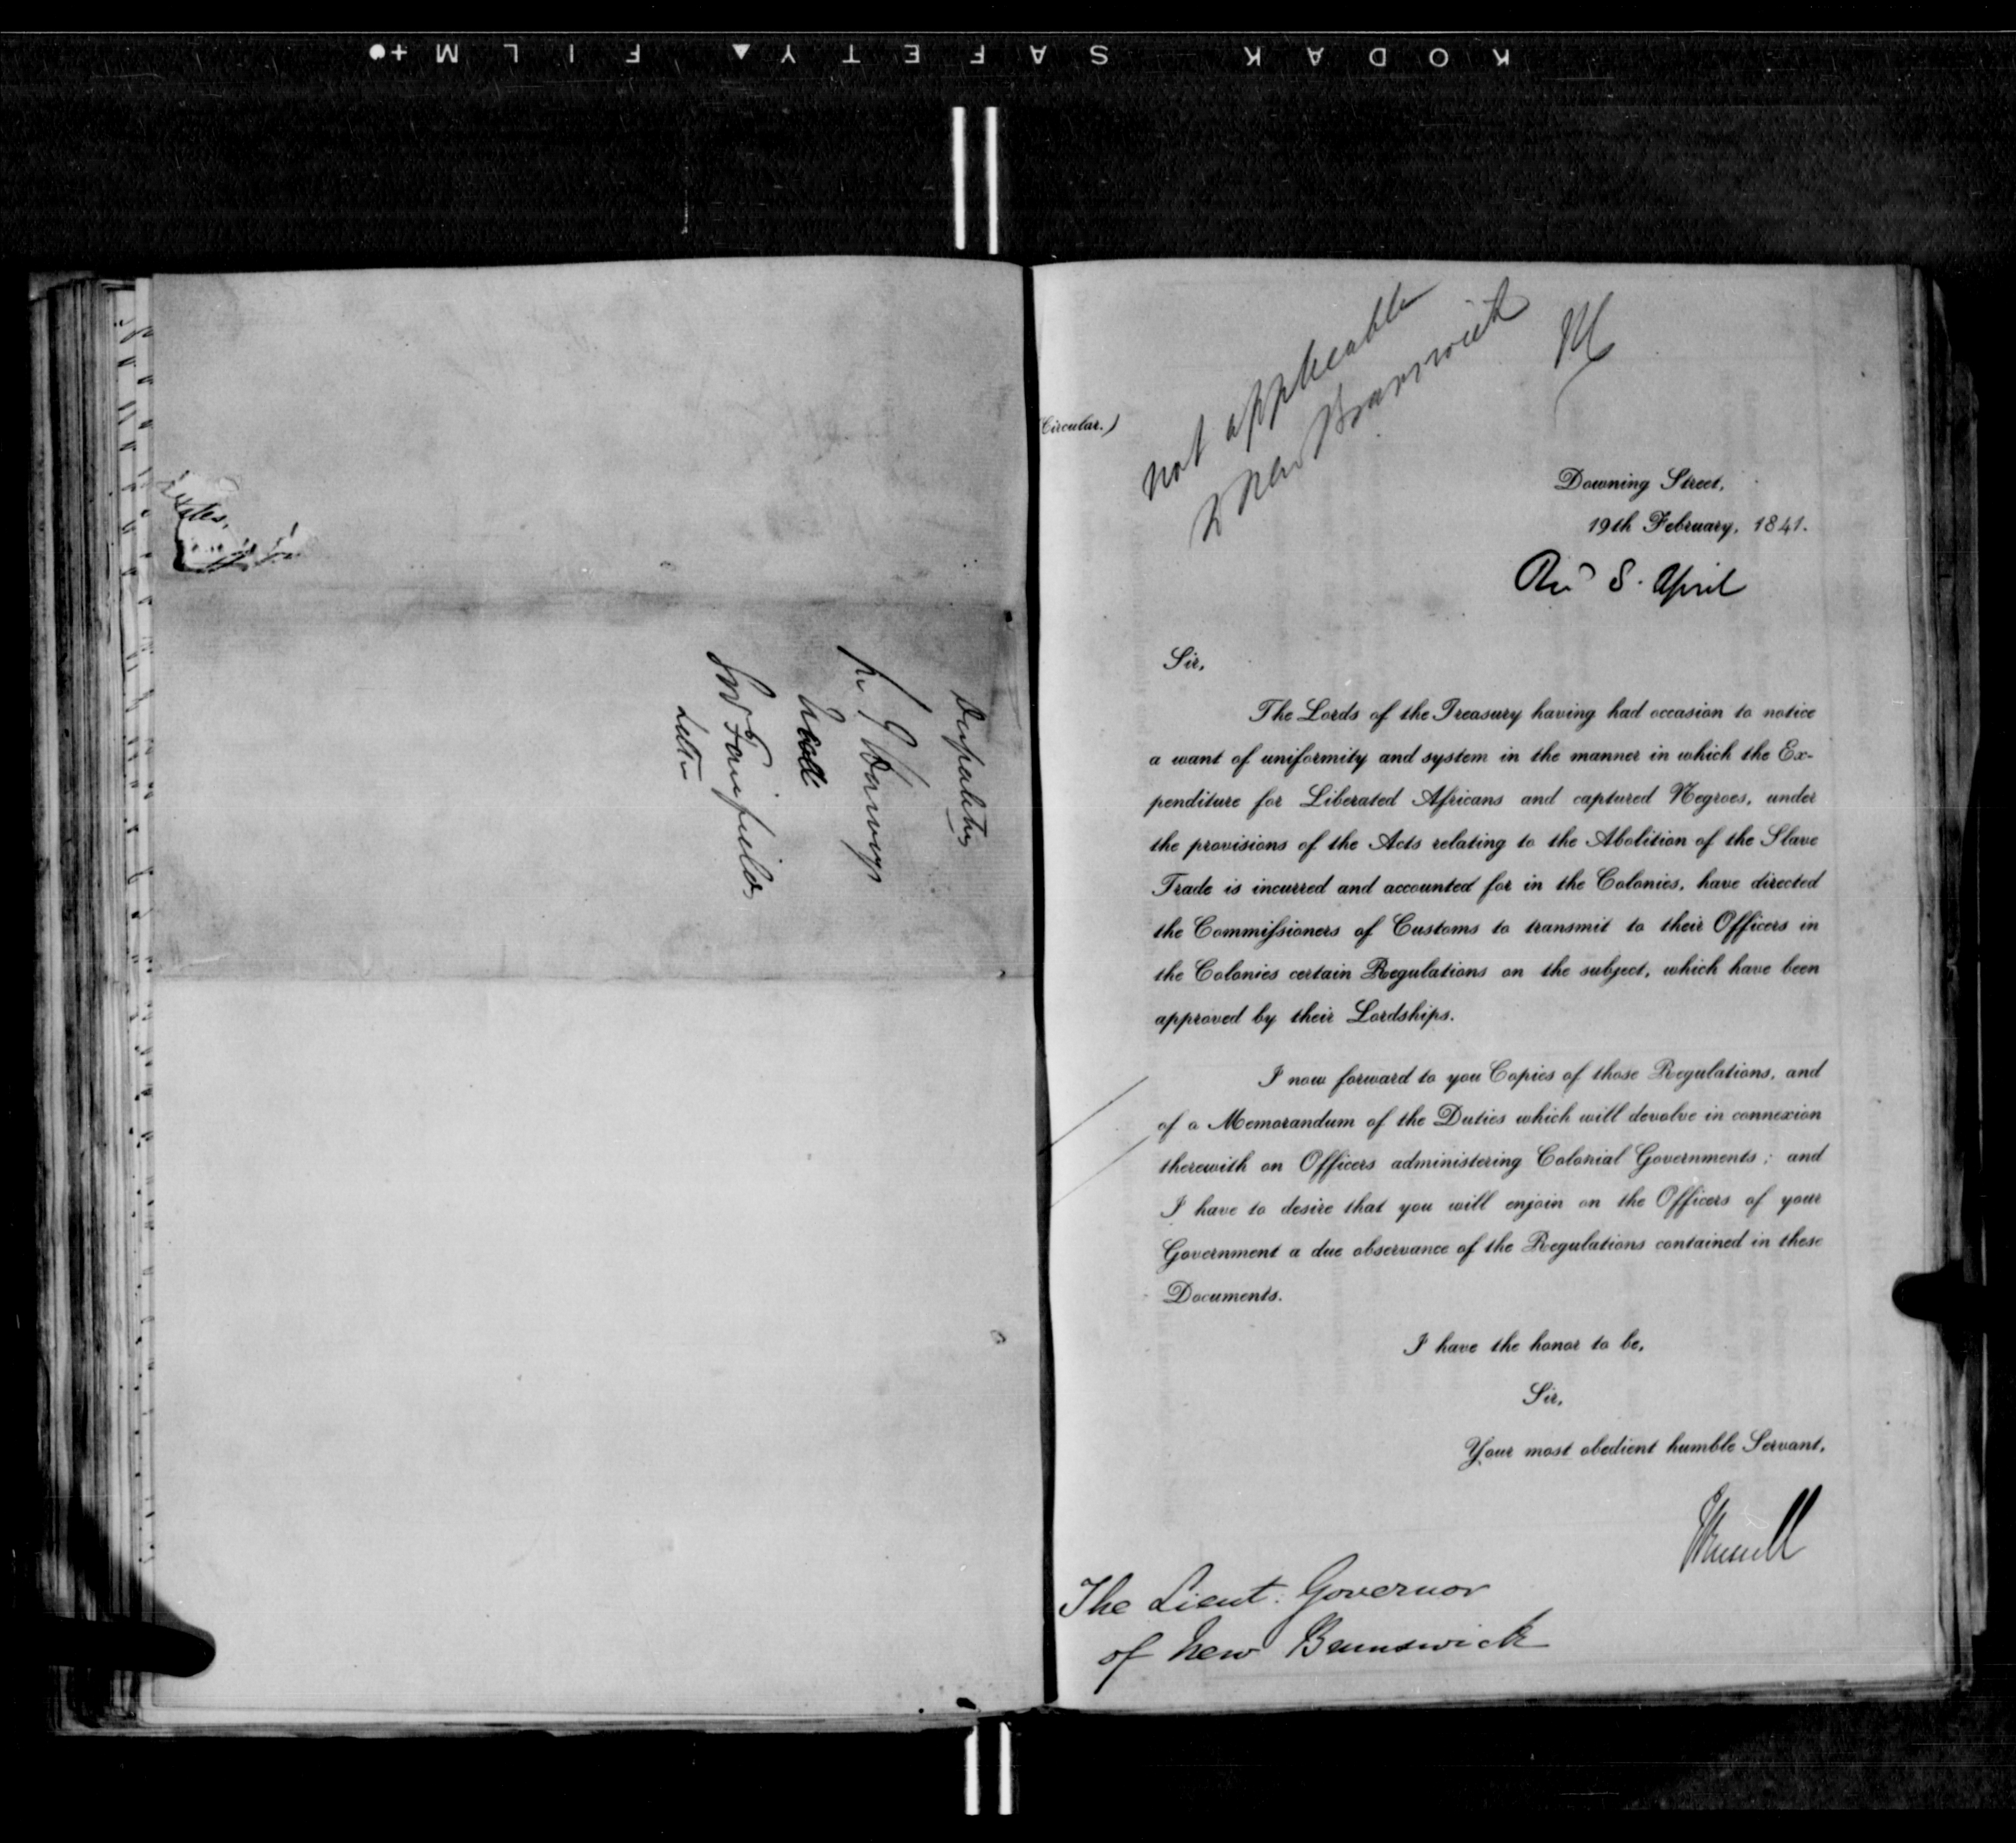 KODAK SAFETY FILM
Despatches
Letter
not applicable
to New Brunswick
(Circular.)
Downing Street,
19th February, 1841.
Recd 8. April
Sir,
The Lords of the Treasury having had occasion to notice
a want of uniformity and system in the manner in which the Ex-
penditure for Liberated Africans and captured Negroes, under
the provisions of the Acts relating to the Abolition of the Slave
Trade is incurred and accounted for in the Colonies, have directed
the Commissioners of Customs to transmit to their Officers in
the Colonies certain Regulations on the subject, which have been
approved by their Lordships.
I now forward to you Copies of those Regulations, and
of a Memorandum of the Duties which will devolve in connexion
therewith on Officers administering Colonial Governments; and
I have to desire that you will enjoin on the Officers of your
Government a due observance of the Regulations contained in these
Documents.
I have the honor to be,
Sir,
Your most obedient humble Servant,
J Russell
The Lieut: Governor
of New Brunswick